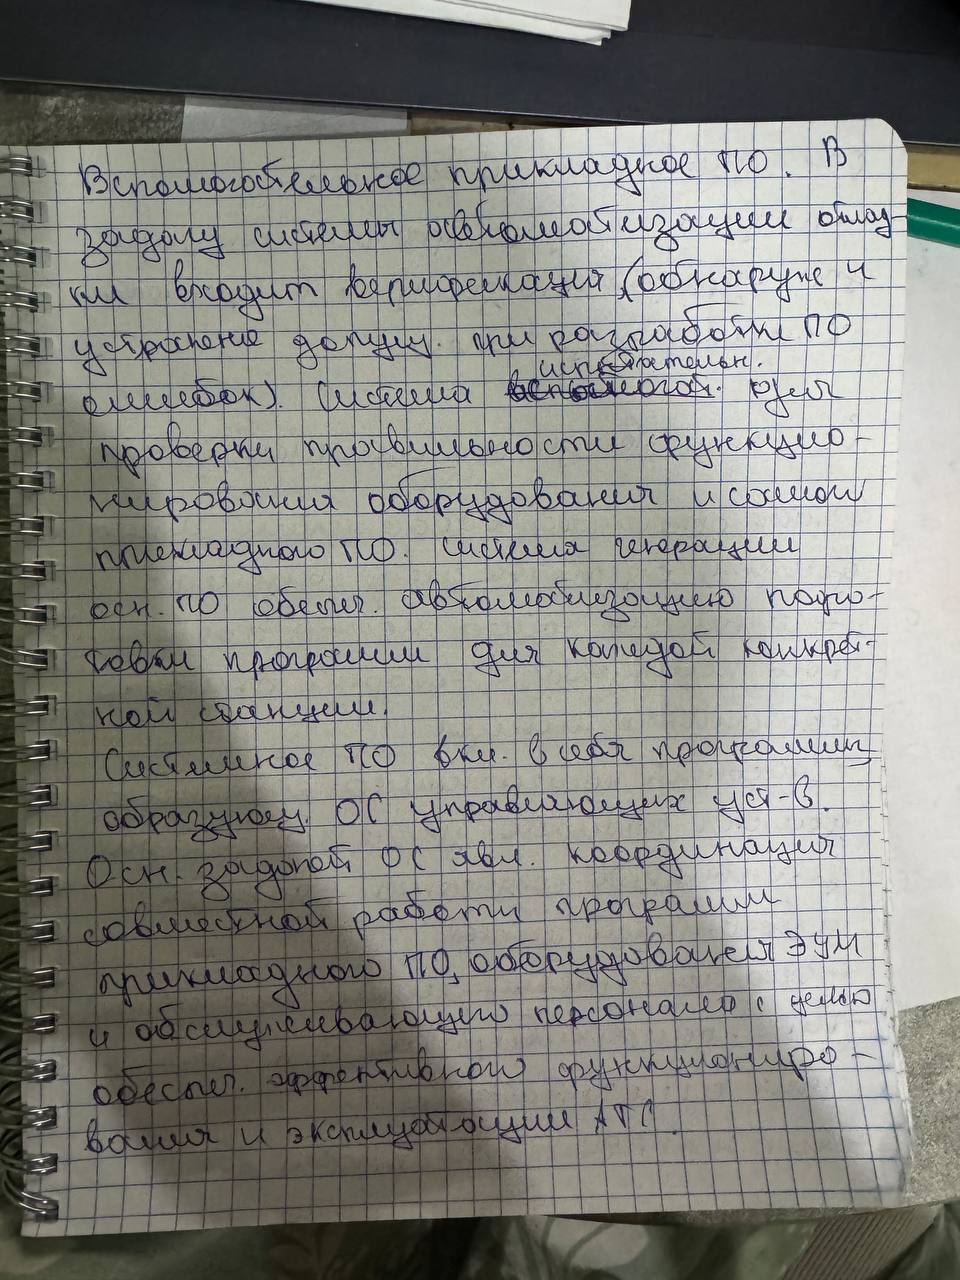 Вспомогательное прикладное ПО. В
задачу системы автоматизации отлад-
ки входит верификация (обнаруж и
устранение допущ. при разработки ПО
ошибок). Система испытательн. для
проверки правильности функцио-
нирования оборудования и самого
прикладного ПО. Система генерации
осн. ПО обеспеч. автоматизацию подго-
товки программ для каждой конкрет-
ной станции.
Системное ПО вкл. в себя программы,
образующ. ОС управляющих уст-в.
Осн. задачей ОС явл. координация
совместной работы программ
прикладного ПО, оборудования ЭУМ
и обслуживающего персонала с целью
обеспеч. эффективной функциониро-
вания и эксплуатации АТС.